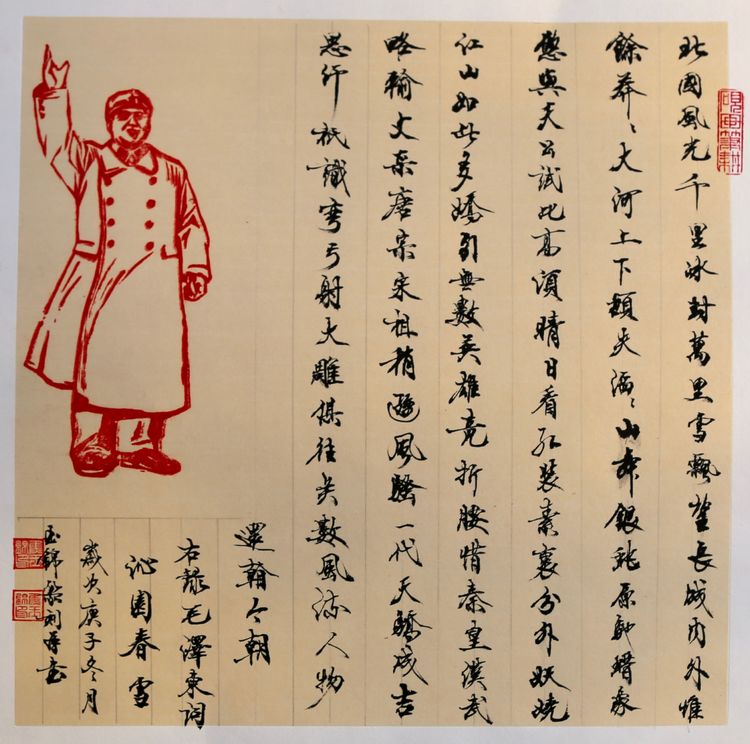 硯田筆耕
北國風光千里冰封萬里雪飄望長城內外惟
餘莽〻大河上下頓失滔〻山舞銀蛇原馳蠟象
欲與天公試比高須晴日看紅裝素裹分外妖嬈
江山如此多嬌引無數英雄竟折腰惜秦皇漢武
略輸文采唐宗宋祖稍遜風騷一代天驕成吉
思汗衹識彎弓射大雕俱往矣數風流人物
還翰今朝
右錄毛澤東詞
沁園春雪
歲次庚子冬月
玉錦書